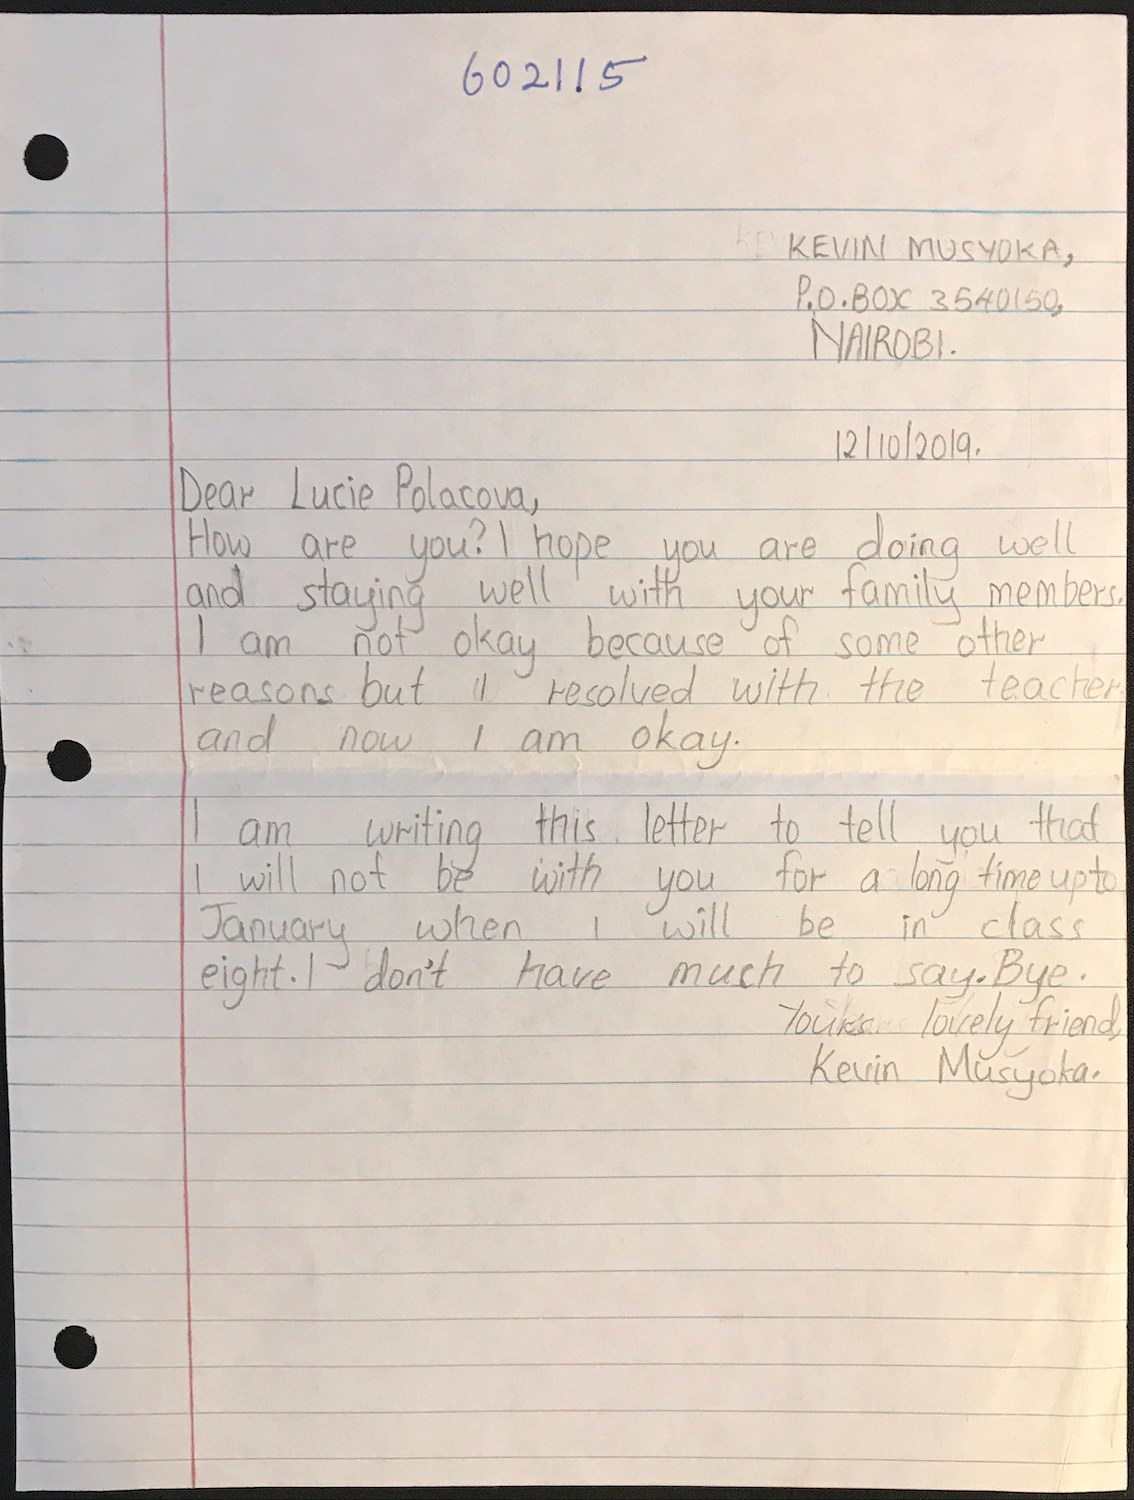 602115
KEVIN MUSYOKA,
P.O.BOX 3540150,
NAIROBI.
12/10/2019.
Dear Lucie Polacova,
How are you? I hope you are doing well
and staying well with your family members.
I am not okay because of some other
reasons but I resolved with the teacher
and now I am okay.
I am writing this letter to tell you that
I will not be with you for a long time upto
January when I will be in class
eight. I don't have much to say. Bye.
Yours lovely friend,
Kevin Musyoka.